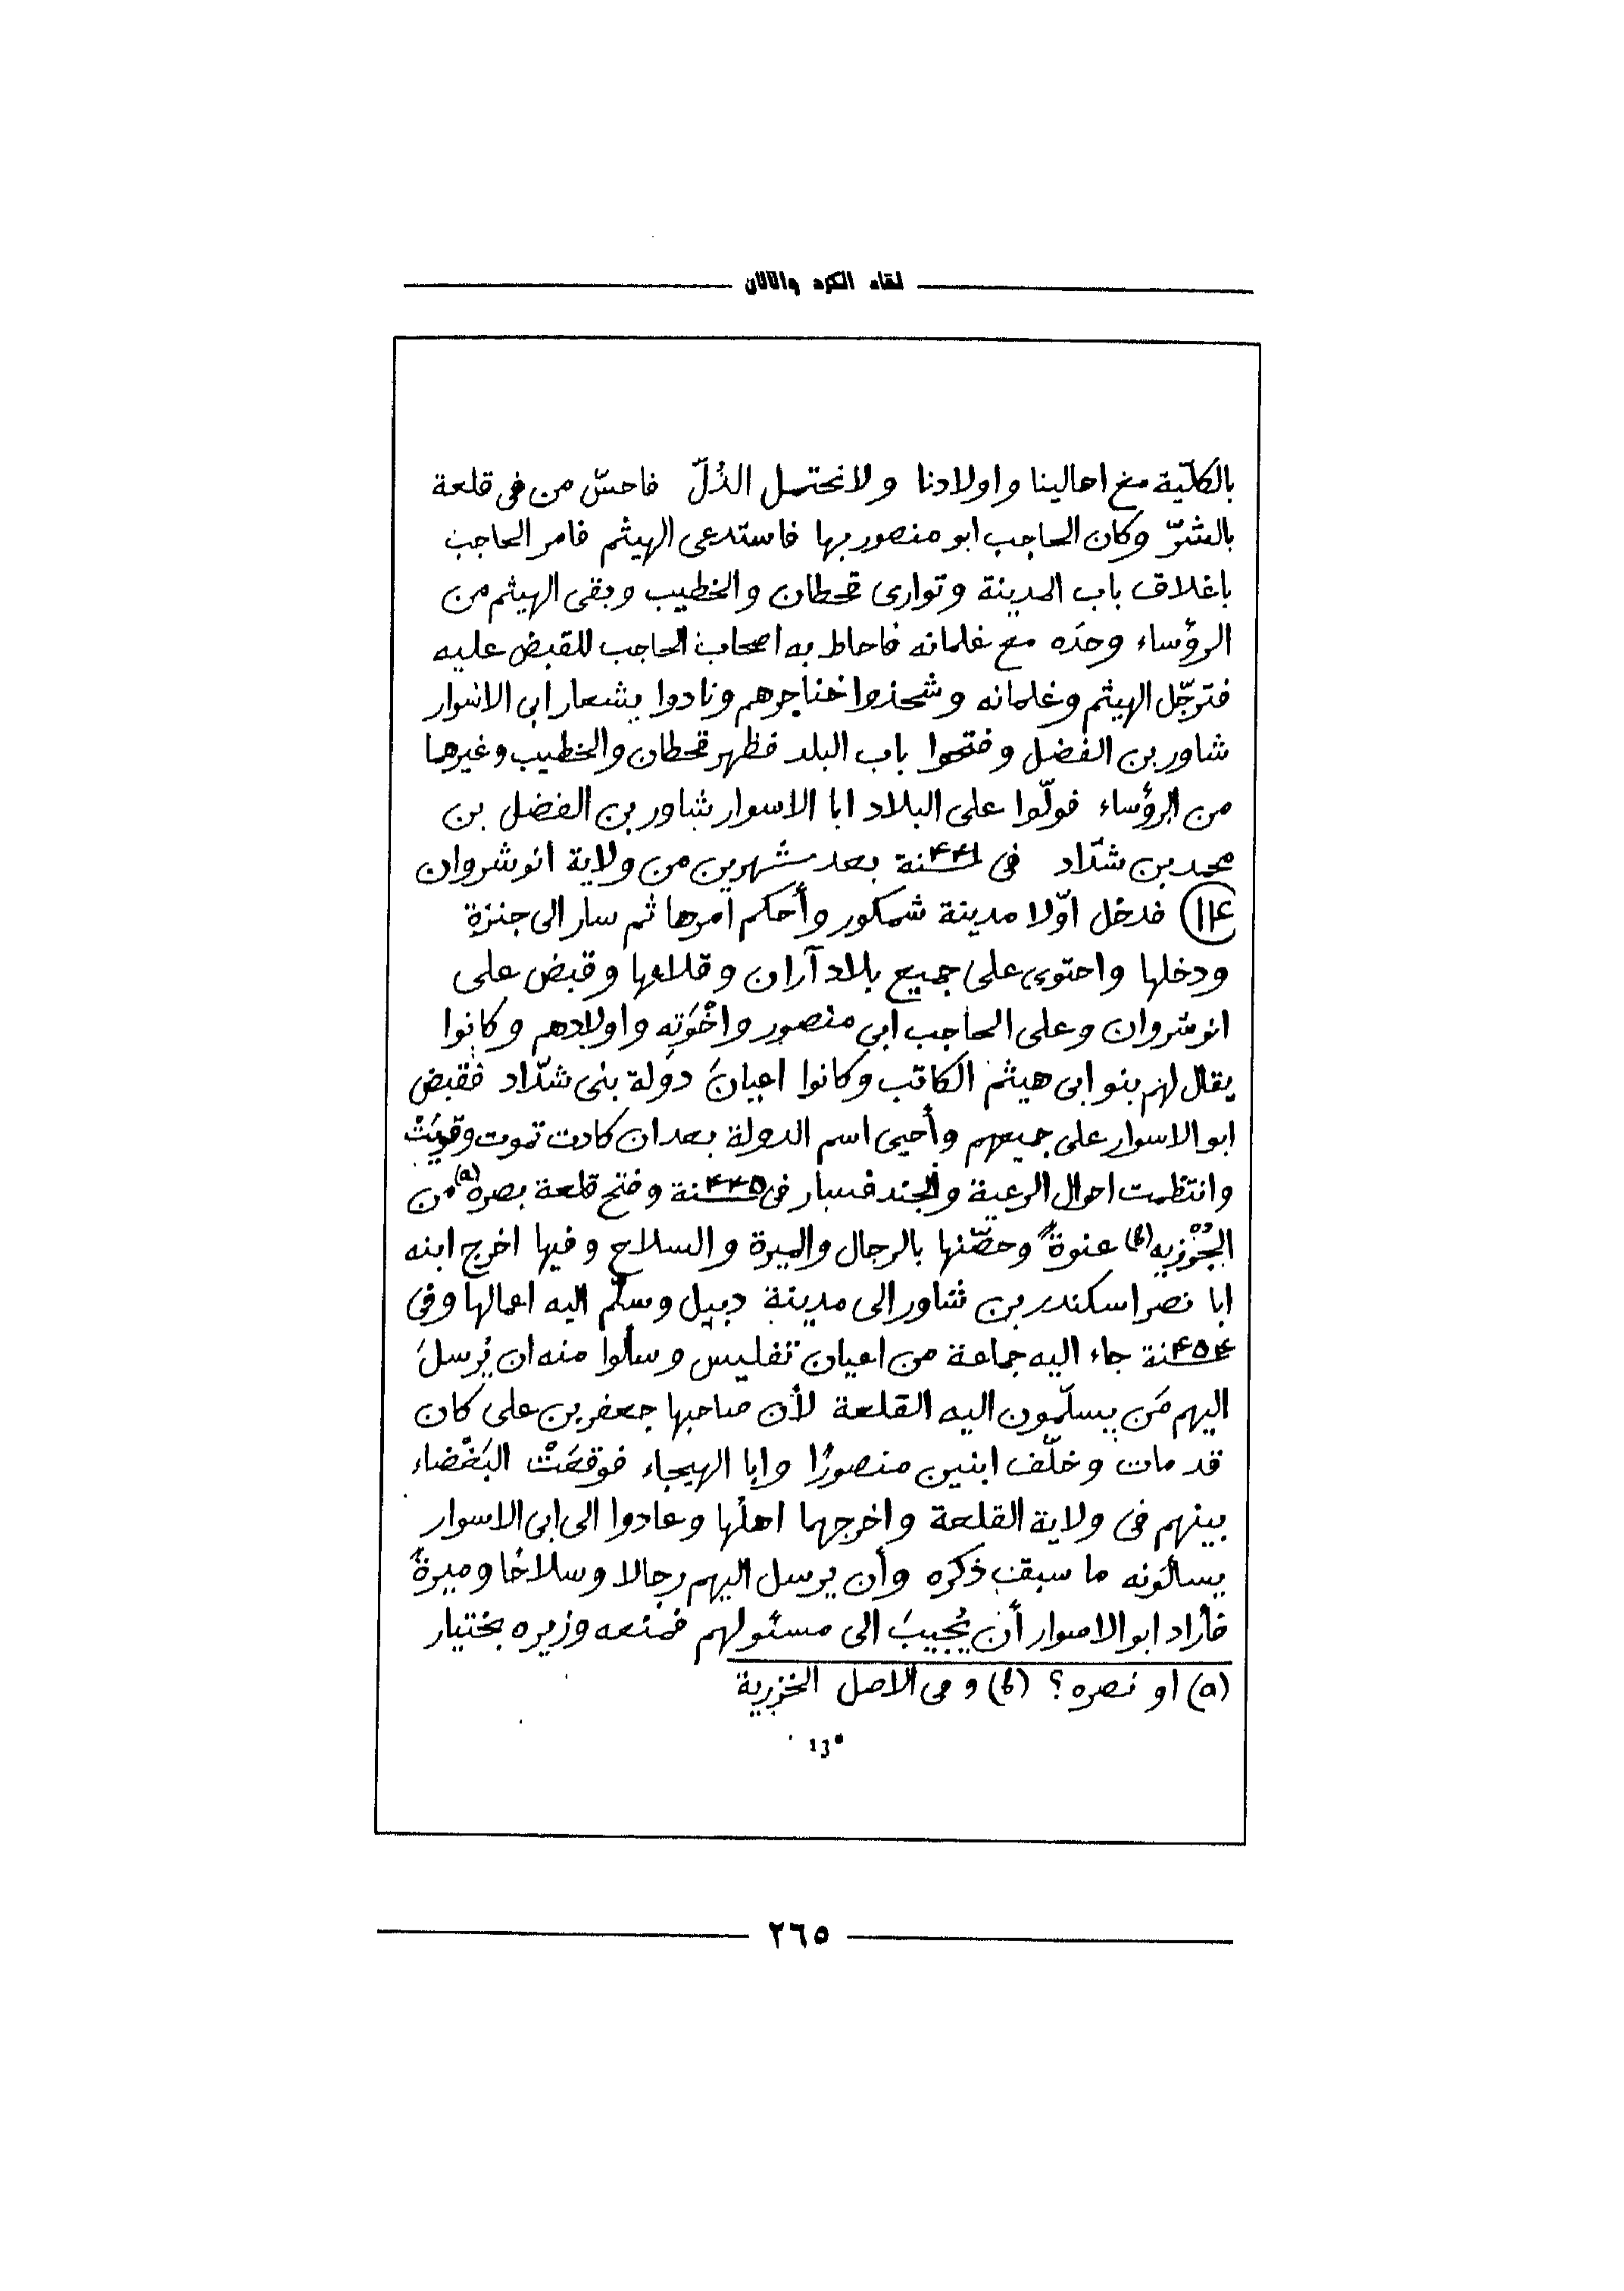 لقاء الكرد واللان
بالكلّية مع اهالينا واولادنا ولا نحتمل الذُلّ فاحسّ من فى قلعة
بالشرّ وكان الحاجب ابو منصور بها فاستدعى الهيثم فامر الحاجب
باغلاق باب المدينة وتوارى قحطان والخطيب وبقى الهيثم من
الرؤساء وحدَه مع غلمانه فاحاط به اصحاب الحاجب للقبض عليه
فترجّل الهيثم وغلمانه وشحذوا خناجرهم ونادوا بشعار ابى الاسوار
شاور بن الفضل وفتحوا باب البلد فظهر قحطان والخطيب وغيرهما
من الرؤساء فولّوا على البلاد ابا الاسوار شاور بن الفضل بن
محمد بن شدّاد فى سنة ۴۴۱ بعد شهرين من ولاية انوشروان
(۱۴) فدخل اوّلا مدينة شمكور وأحكم امرها ثم سار الى جنزة
ودخلها واحتوى على جميع بلاد آران وقلاعها وقبض على
انوشروان وعلى الحاجب ابى منصور واخْوَتِه واولادهم وكانوا
يقال لهم بنو ابى هيثم الكاتب وكانوا اعيانَ دَولة بنى شدّاد فقبض
ابو الاسوار على جميعهم وأحيى اسم الدولة بعد ان كادت تموت وقويَتْ
وانتظمت احوال الرعية والجند فسار فى سنة ۴۴۵ وفتح قلعة بصره(a) من
الجُرْزيه(b) عنوةً وحصّنها بالرجال والميرة والسلاح وفيها اخرج ابنه
ابا نصر اسكندر بن شاور الى مدينة دبيل وسلّم اليه اعمالها وفى
سنة ۴۵۴ جاء اليه جماعة من اعيان تفليس وسألوا منه ان يُرسلَ
اليهم مَن يسلّمون اليه القلعة لأن صاحبها جعفر بن على كان
قد مات وخلّف ابنين منصورًا وابا الهيجاء فوقعَتْ البَغْضاء
بينهم فى ولاية القلعة واخرجهما اهلُها وعادوا الى ابى الاسوار
يسالَونه ما سبق ذكره وأن يرسل اليهم رجالا وسلاحًا وميرةً
فأراد ابو الاسوار أن يُجيبَ الى مسئولهم فمنعه وزيره بختيار
(a) او نصره؟ (b) و فى الاصل الخزرية
13*
٢٦٥